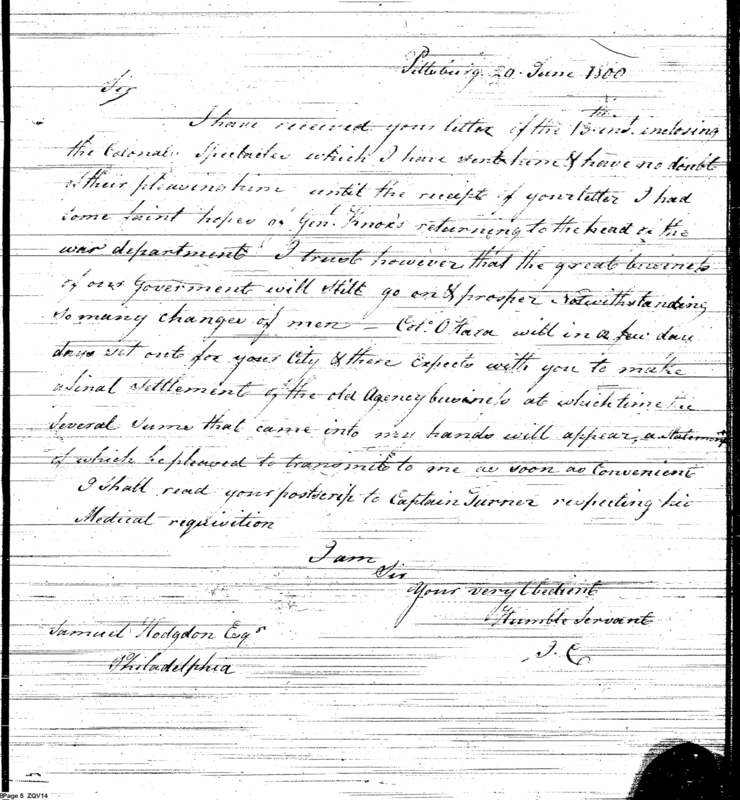 Pittsburg 20 June 1800
Sir
I have received your letter of the 13th inst. inclosing
the Colonals Spectacles which I have sent him & have no doubt
of their pleasing him until the receipt of your letter I had
some faint hopes of Genl. Knox's returning to the head of the
war department I trust however that the great business
of our Goverment will still go on & prosper Notwithstanding
so many changes of men — Col. O Hara will in a few day
days set out for your City & there Expects with you to make
a final settlement of the old Agency business at which time the
several sums that came into my hands will appear, a statement
of which be pleased to transmit to me as soon as Convenient
I shall read your postscrip to Captain Turner respecting his
Medical requisition
I am
Sir
Your very Obedient
Humble Servant
J. C
Samuel Hodgdon Esqr
Philadelphia
BPage 5 ZQV14